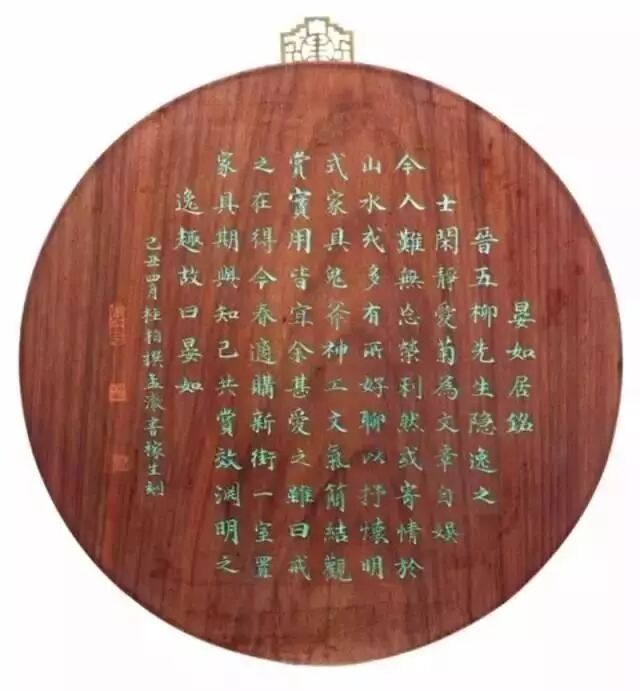 晏如居銘
晉五柳先生隐逸之
士閑靜愛菊為文章自娱
今人難無忘榮利然或寄情於
山水或多有所好聊以抒懷明
式家具鬼斧神工文氣簡結觀
賞實用皆宜余甚愛之雖曰戒
之在得今春適購新街一室置
家具期與知己共賞效淵明之
逸趣故曰晏如
己丑四月桂柏撰孟澂書稼生刻